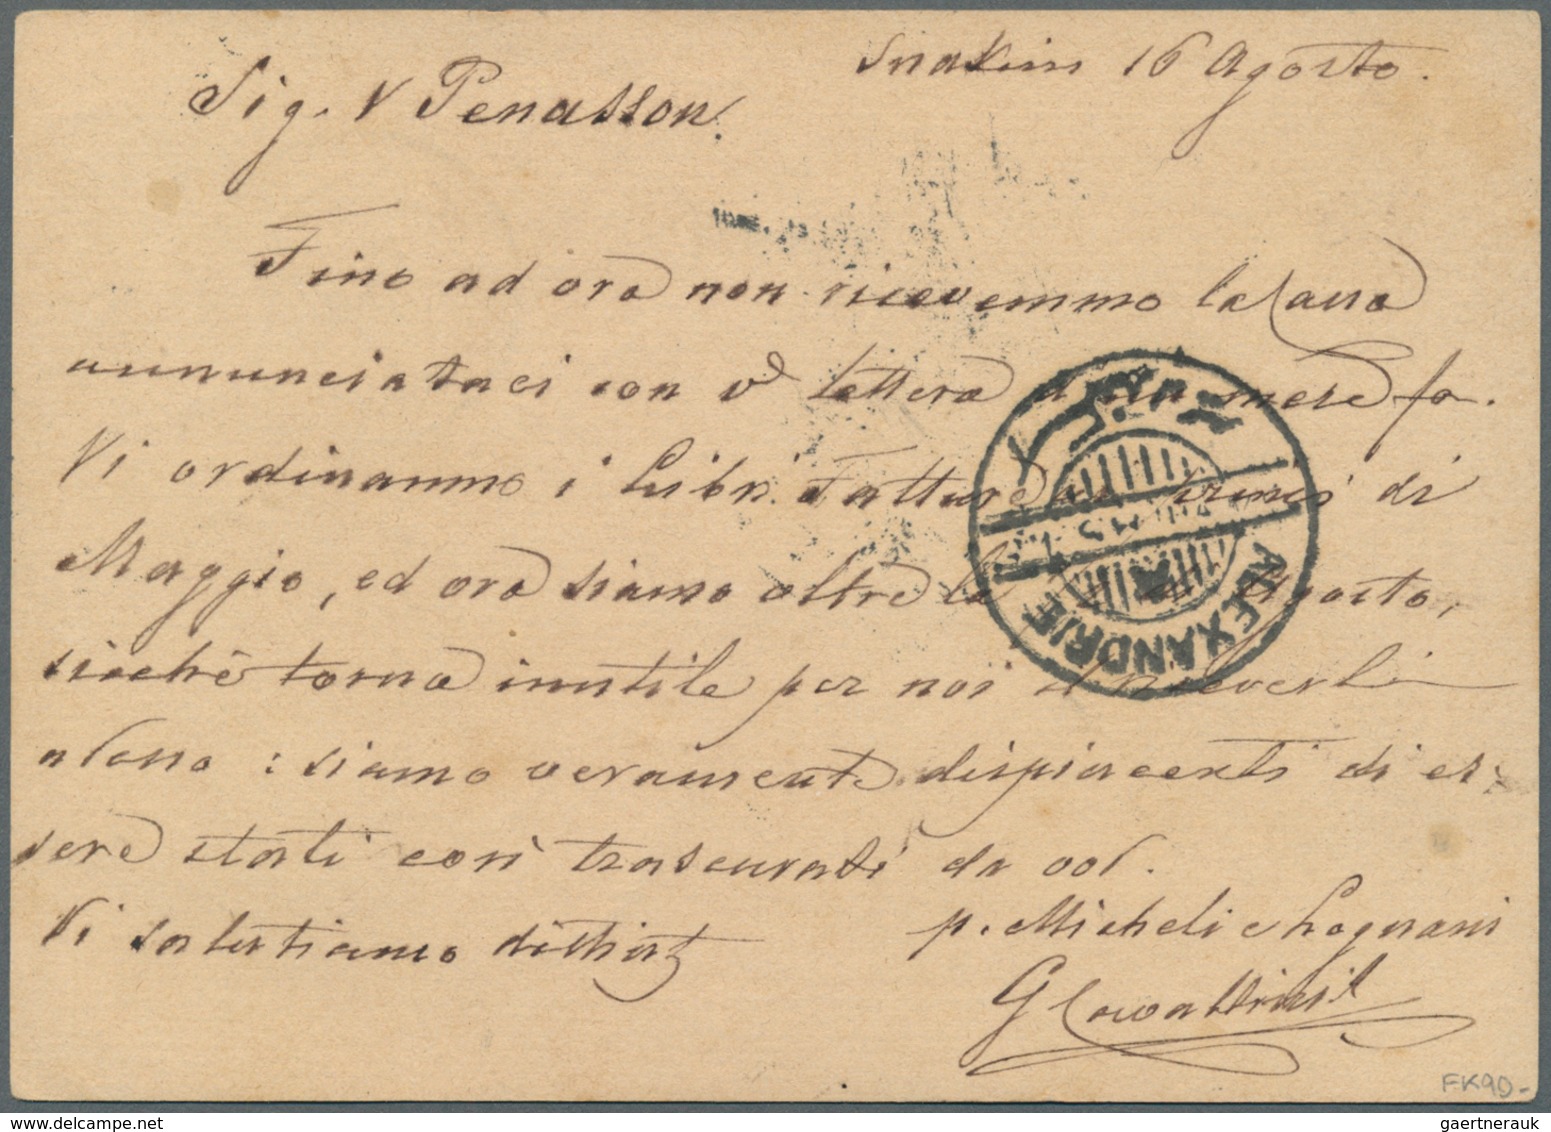 Suakim 16 Agosto.
Sig. V Penasson.
Fino ad ora non ricevemmo la Cassa
annunciataci con vª lettera d' un mese fa.
Vi ordinammo i Libri Fatture ai primi di
Maggio, ed ora siamo oltre la Agosto,
sicchè torna inutile per noi il riceverli
adesso : siamo veramente dispiacenti di es-
sere stati così trascurati da voi.
Vi salutiamo distint
p. Micheli e Lognani
G
ALEXANDRIE
FK90-
gaertnerauk
delcampe.net